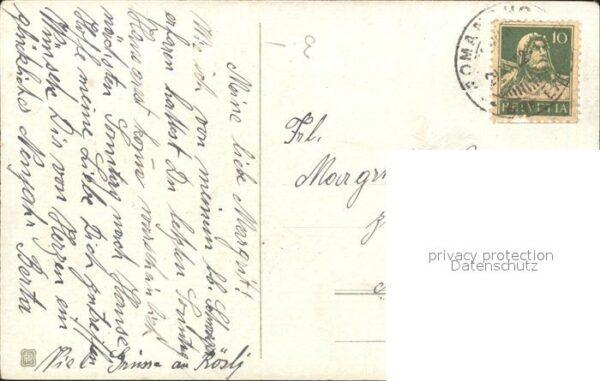 Meine liebe Margrit!
Wie ich von meinem lb. Schwager
erfaren hattest Du letzten Sonntag
Hans erst koṁe warscheinlich
nächsten Sonntag nach Hause
Hoffe meine Liebe Dich zu treffen
Wünsche Dir von Herzen ein
glückliches Neujahr Berta
Viel Grüsse an Rösli
a
Frl.
Margr
ROMANSHO
10
HELVETIA
privacy protection
Datenschutz